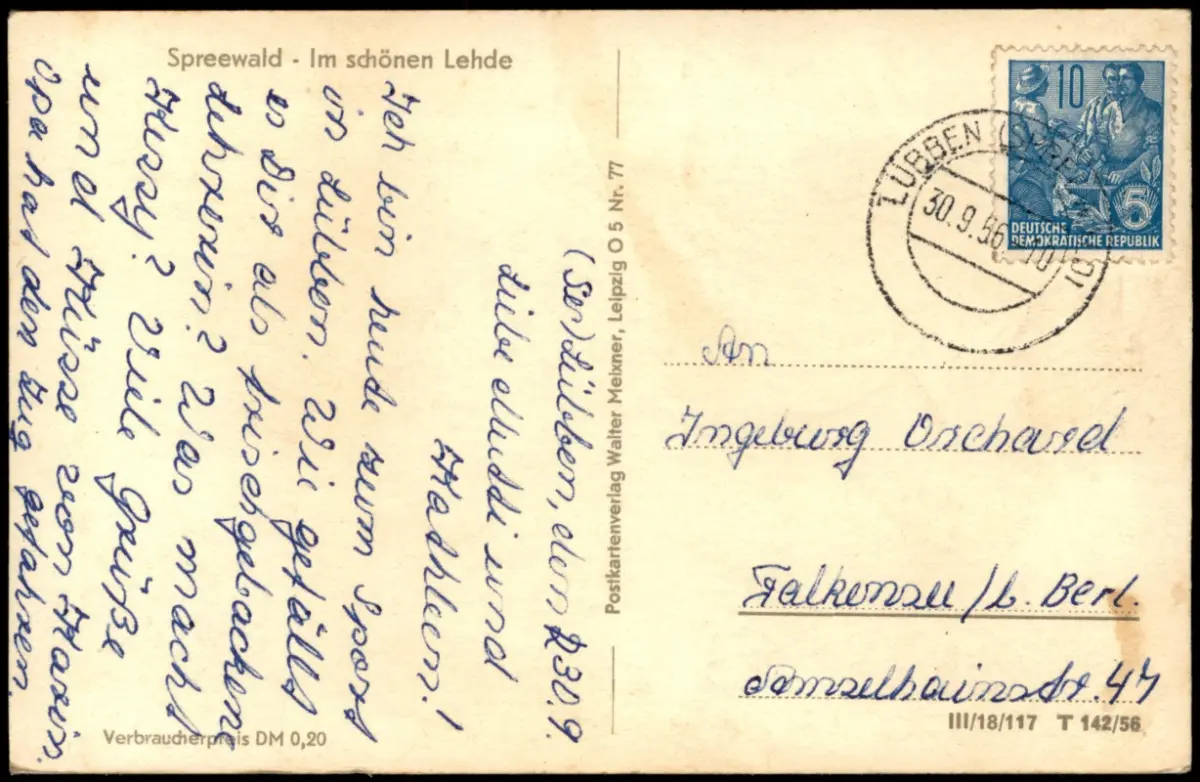 Spreewald - Im schönen Lehde
(Ser) Lübben, den 30.9.
Liebe Muddi und
Kathleen!
Ich bin heute zum Sport
in Lübben. Wie gefällt
es Dir als frischgebackene
Lehrerin? Was macht
Hussy? Viele Grüße
und Küsse von Karin.
Opa hat den Zug gefahren.
Verbraucherpreis DM 0,20
Postkartenverlag Walter Meixner, Leipzig O 5 Nr. 77
10
5
DEUTSCHE
DEMOKRATISCHE REPUBLIK
LÜBBEN
30.9.56
An
Ingeburg Orchard
Falkensee / b. Berl.
Amselhainstr. 47
III/18/117 T 142/56